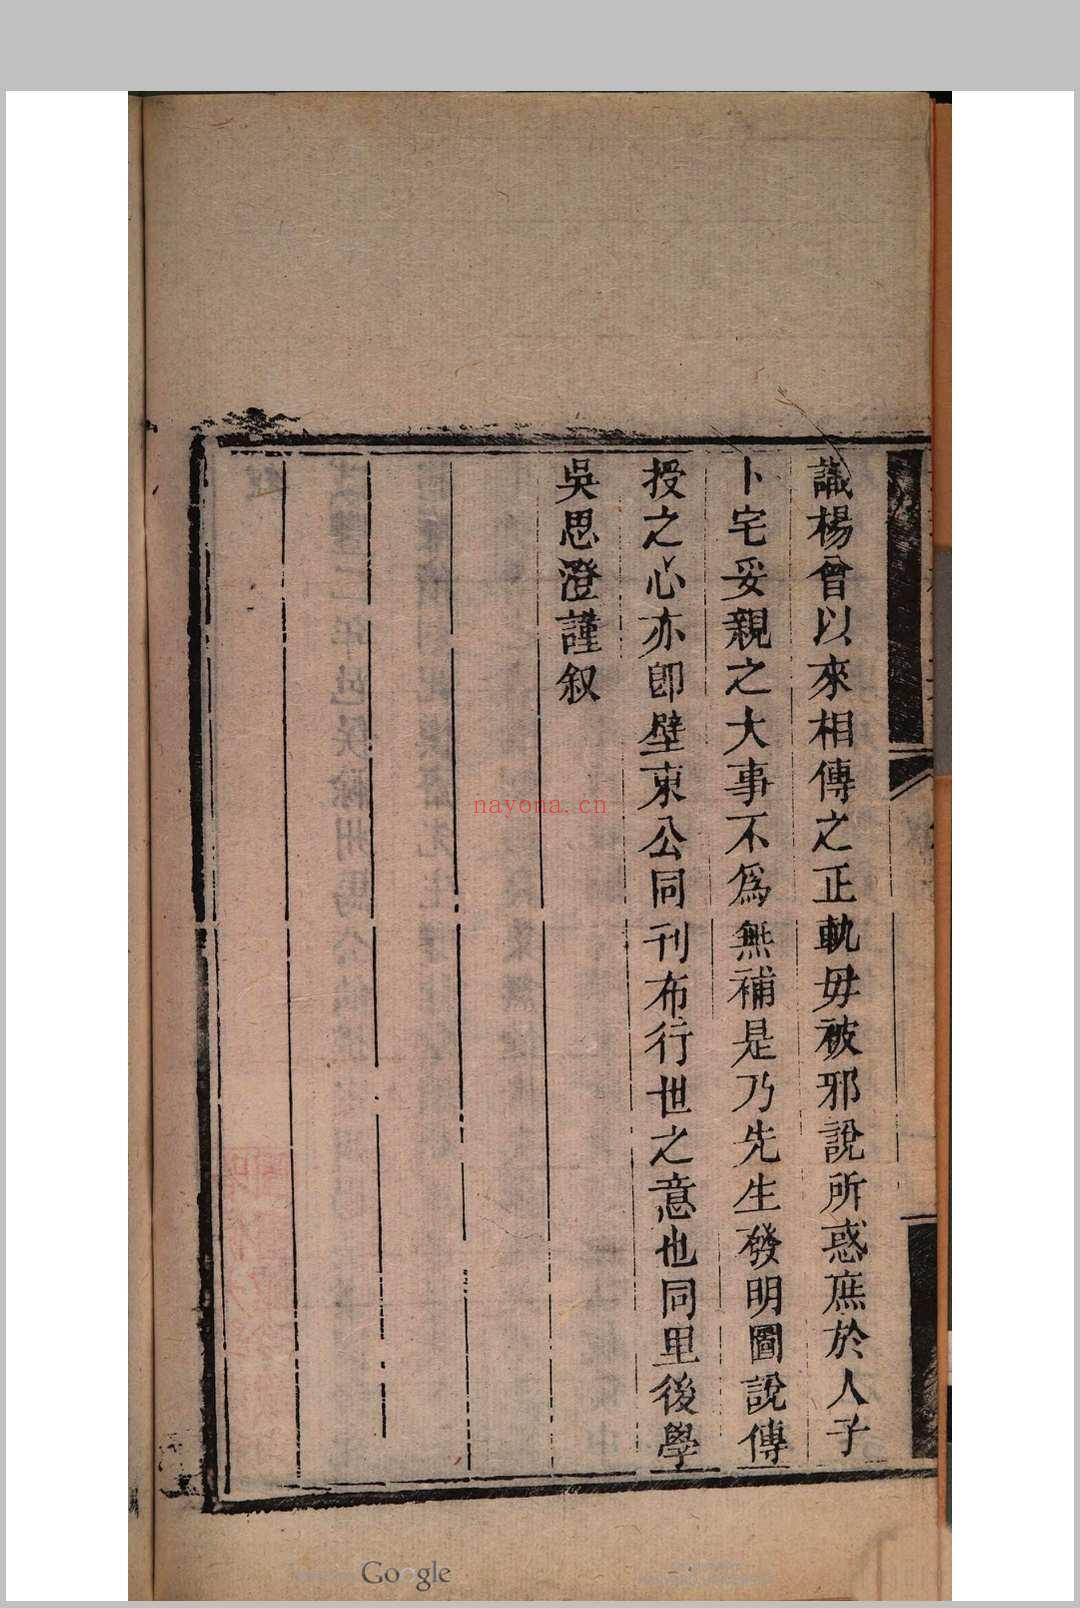 識楊曾以來相傳之正軌毋被邪說所惑庶於人子
卜宅妥親之大事不爲無補是乃先生發明圖說傳
授之心亦卽壁東公同刊布行世之意也同里後學
吳思澄謹叙
nayona.cn
Google